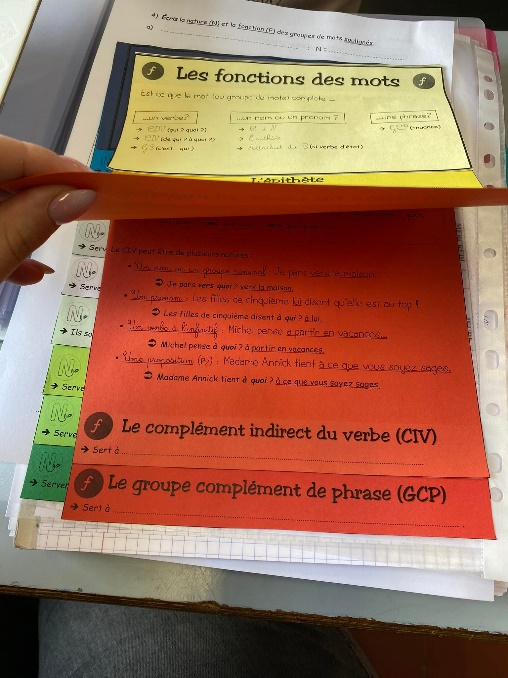 4) Écris la nature (N) et la fonction (F) des groupes de mots soulignés.
a)
: N :
f Les fonctions des mots f
Est-ce que le mot (ou groupe de mots) complète ...
...un verbe?
...un nom ou un pronom ?
...une phrase?
→ CDV (qui ? quoi ?)
→ GCP
→ CIV (de qui ? à quoi ?)
→ GS
(si verbe d'état)
L'épithète
N
→ Serv
Le CIV peut être de plusieurs natures :
• Un nom ou un groupe nominal : Je pars vers la maison.
➲ Je pars vers quoi ? vers la maison.
N
→ Serve
• Un pronom : Les filles de cinquième lui disent qu'elle est au top !
➲ Les filles de cinquième disent à qui ? à lui.
N
→ Ils so
• Un verbe à l'infinitif : Michel pense à partir en vacances.
➲ Michel pense à quoi ? à partir en vacances.
N
→ Serve
• Une proposition (P2) : Madame Annick tient à ce que vous soyez sages.
➲ Madame Annick tient à quoi ? à ce que vous soyez sages.
N
→ Serve
f Le complément indirect du verbe (CIV)
→ Sert à
N
→ Server
f Le groupe complément de phrase (GCP)
→ Sert à